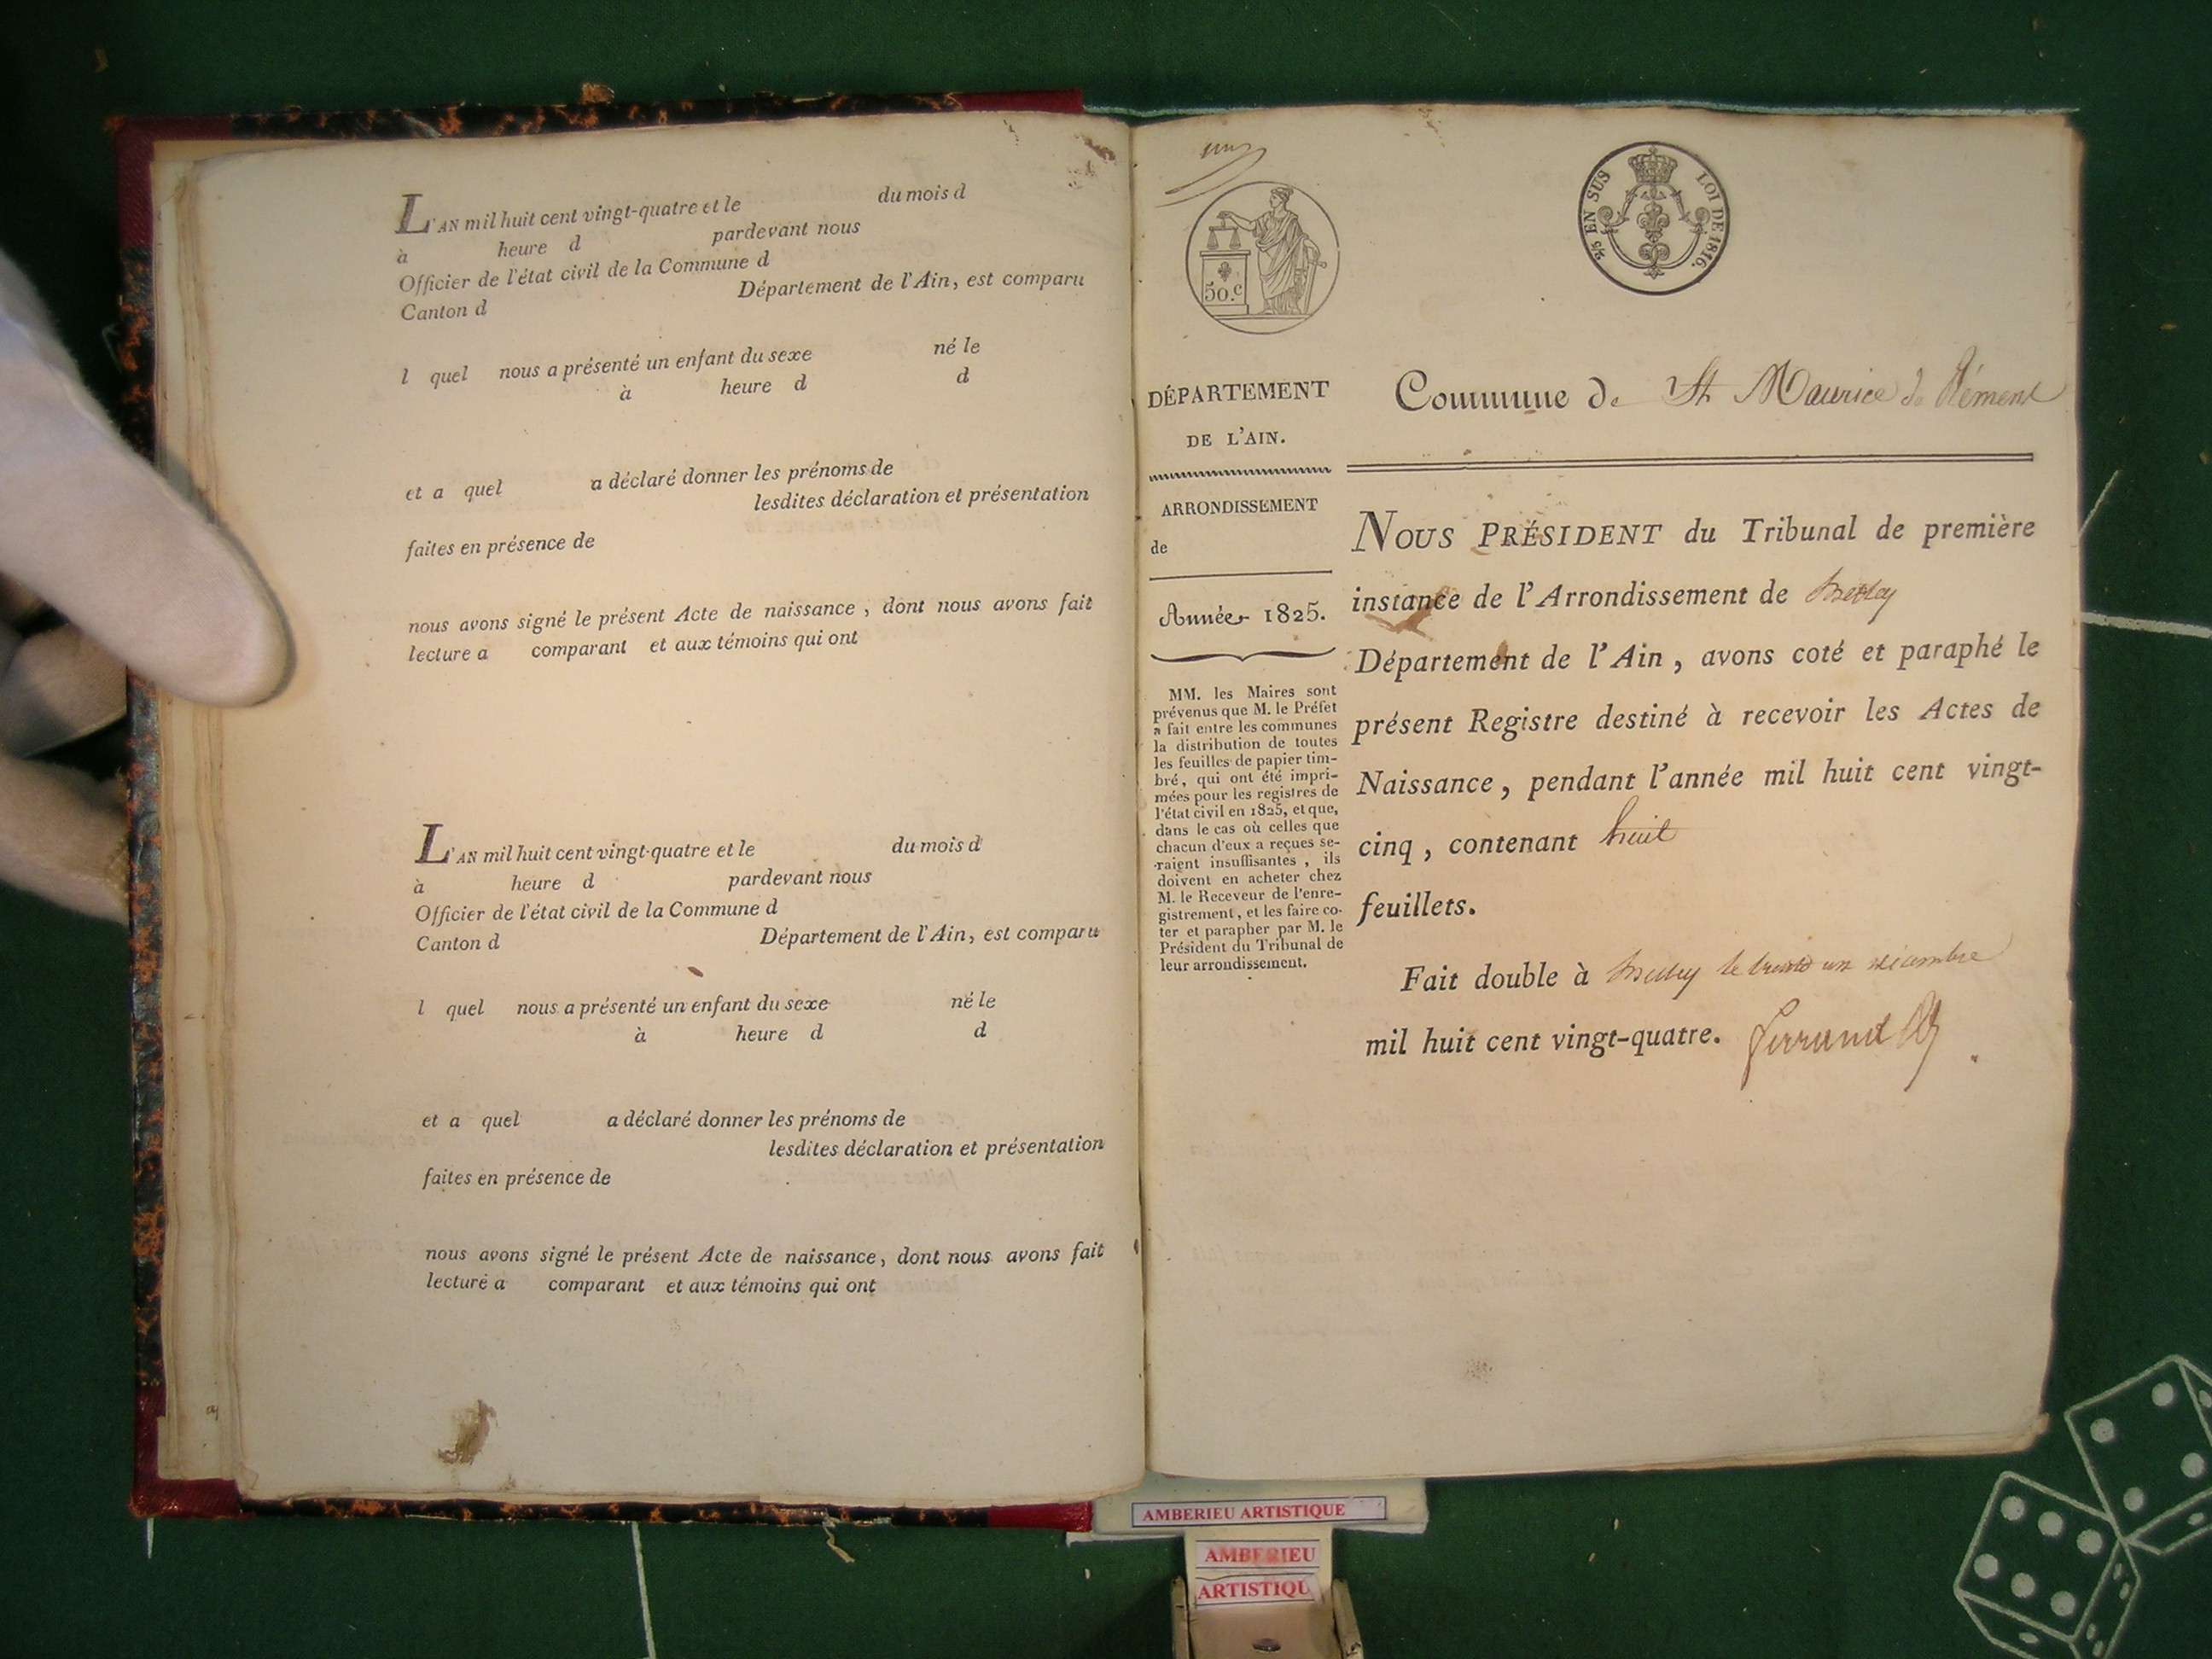 L'AN mil huit cent vingt-quatre et le du mois d
à heure d pardevant nous
Officier de l'état civil de la Commune d
Canton d Département de l'Ain, est comparu
l quel nous a présenté un enfant du sexe né le
à heure d d
et a quel a déclaré donner les prénoms de
lesdites déclaration et présentation
faites en présence de
nous avons signé le présent Acte de naissance, dont nous avons fait
lecture a comparant et aux témoins qui ont
L'AN mil huit cent vingt-quatre et le du mois d
à heure d pardevant nous
Officier de l'état civil de la Commune d
Canton d Département de l'Ain, est comparu
l quel nous a présenté un enfant du sexe né le
à heure d d
et a quel a déclaré donner les prénoms de
lesdites déclaration et présentation
faites en présence de
nous avons signé le présent Acte de naissance, dont nous avons fait
lecture a comparant et aux témoins qui ont
50.c
EN SUS LOI DE 1816.
DÉPARTEMENT
DE L'AIN.
ARRONDISSEMENT
de
Année 1825.
MM. les Maires sont
prévenus que M. le Préfet
a fait entre les communes
la distribution de toutes
les feuilles de papier tim-
bré, qui ont été impri-
mées pour les registres de
l'état civil en 1825, et que,
dans le cas où celles que
chacun d'eux a reçues se-
raient insuffisantes, ils
doivent en acheter chez
M. le Receveur de l'enre-
gistrement, et les faire co-
ter et parapher par M. le
Président du Tribunal de
leur arrondissement.
Commune de St Maurice de Rément
NOUS PRÉSIDENT du Tribunal de première
instance de l'Arrondissement de
Département de l'Ain, avons coté et paraphé le
présent Registre destiné à recevoir les Actes de
Naissance, pendant l'année mil huit cent vingt-
cinq, contenant huit
feuillets.
Fait double à le trente un décembre
mil huit cent vingt-quatre.
AMBERIEU ARTISTIQUE
AMBERIEU
ARTISTIQU